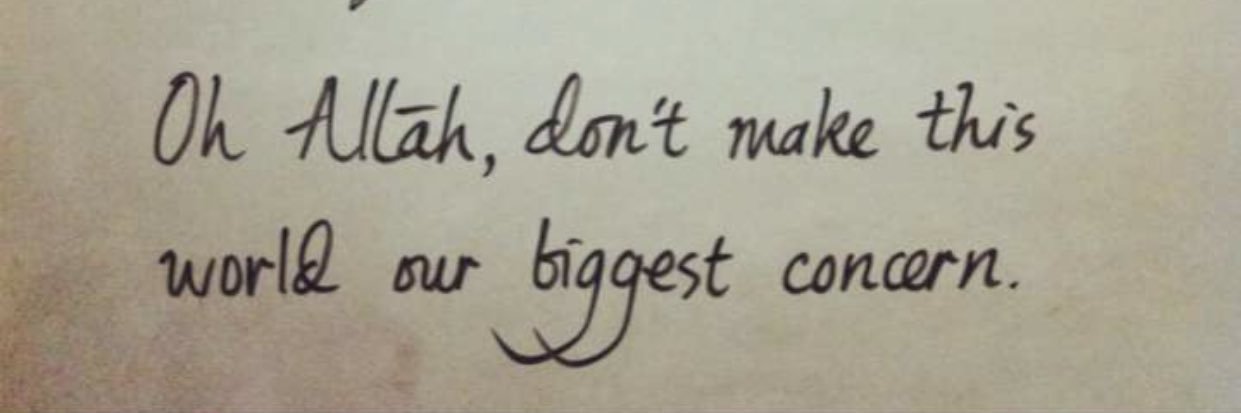 Oh Allāh, don't make this
world our biggest concern.